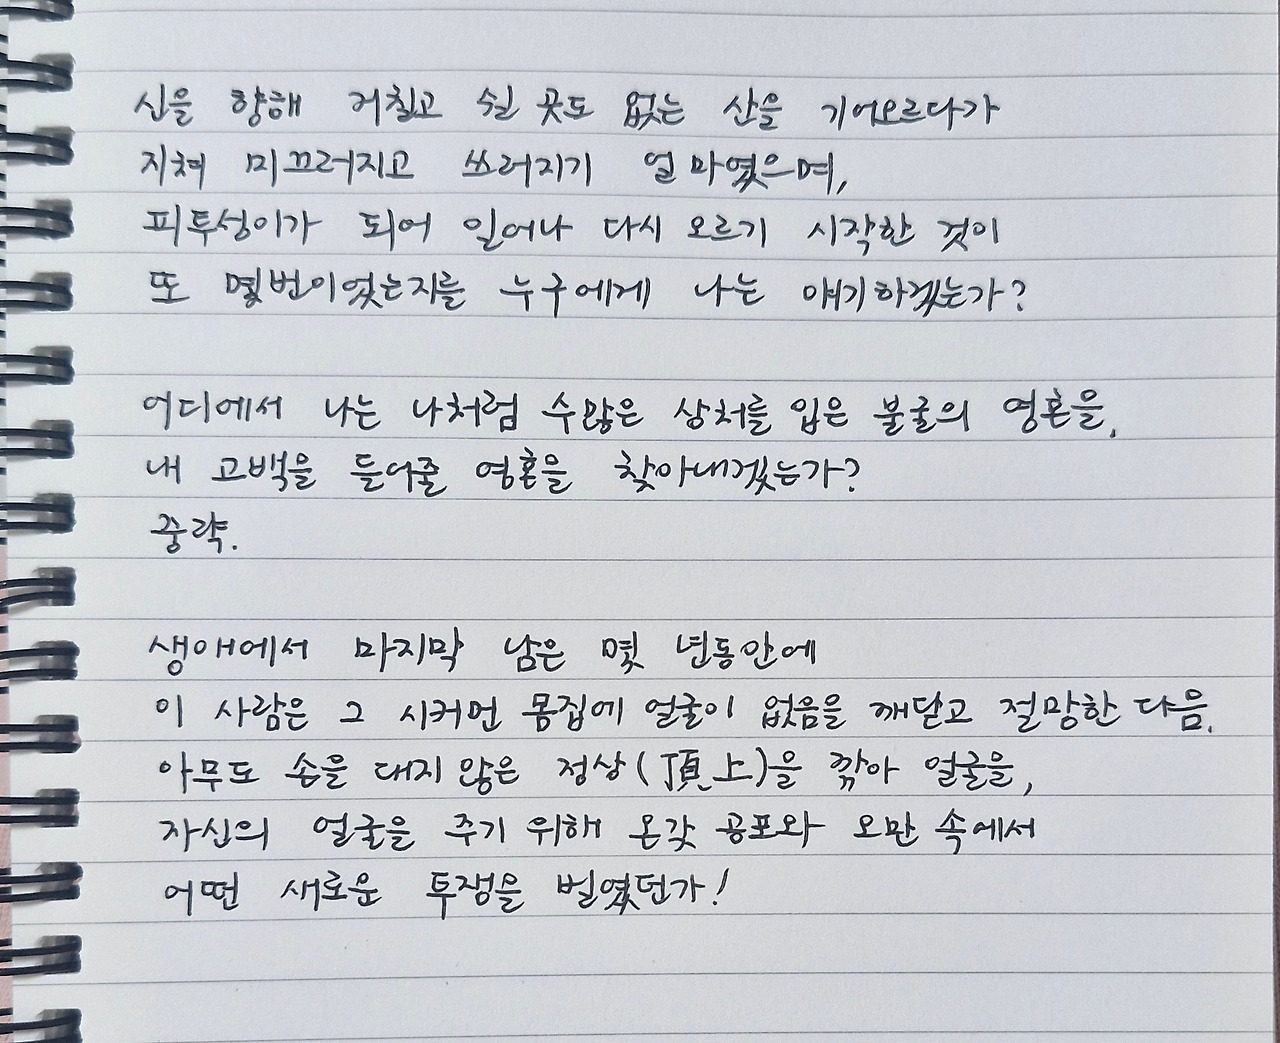 신을 향해 거칠고 쉴 곳도 없는 산을 기어오르다가
지쳐 미끄러지고 쓰러지기 얼마였으며,
피투성이가 되어 일어나 다시 오르기 시작한 것이
또 몇번이었는지를 누구에게 나는 얘기하겠는가?
어디에서 나는 나처럼 수많은 상처를 입은 불굴의 영혼을,
내 고백을 들어줄 영혼을 찾아내겠는가?
중략.
생애에서 마지막 남은 몇 년동안에
이 사람은 그 시커먼 몸집에 얼굴이 없음을 깨닫고 절망한 다음,
아무도 손을 대지 않은 정상(頂上)을 깎아 얼굴을,
자신의 얼굴을 주기 위해 온갖 공포와 오만 속에서
어떤 새로운 투쟁을 벌였던가!